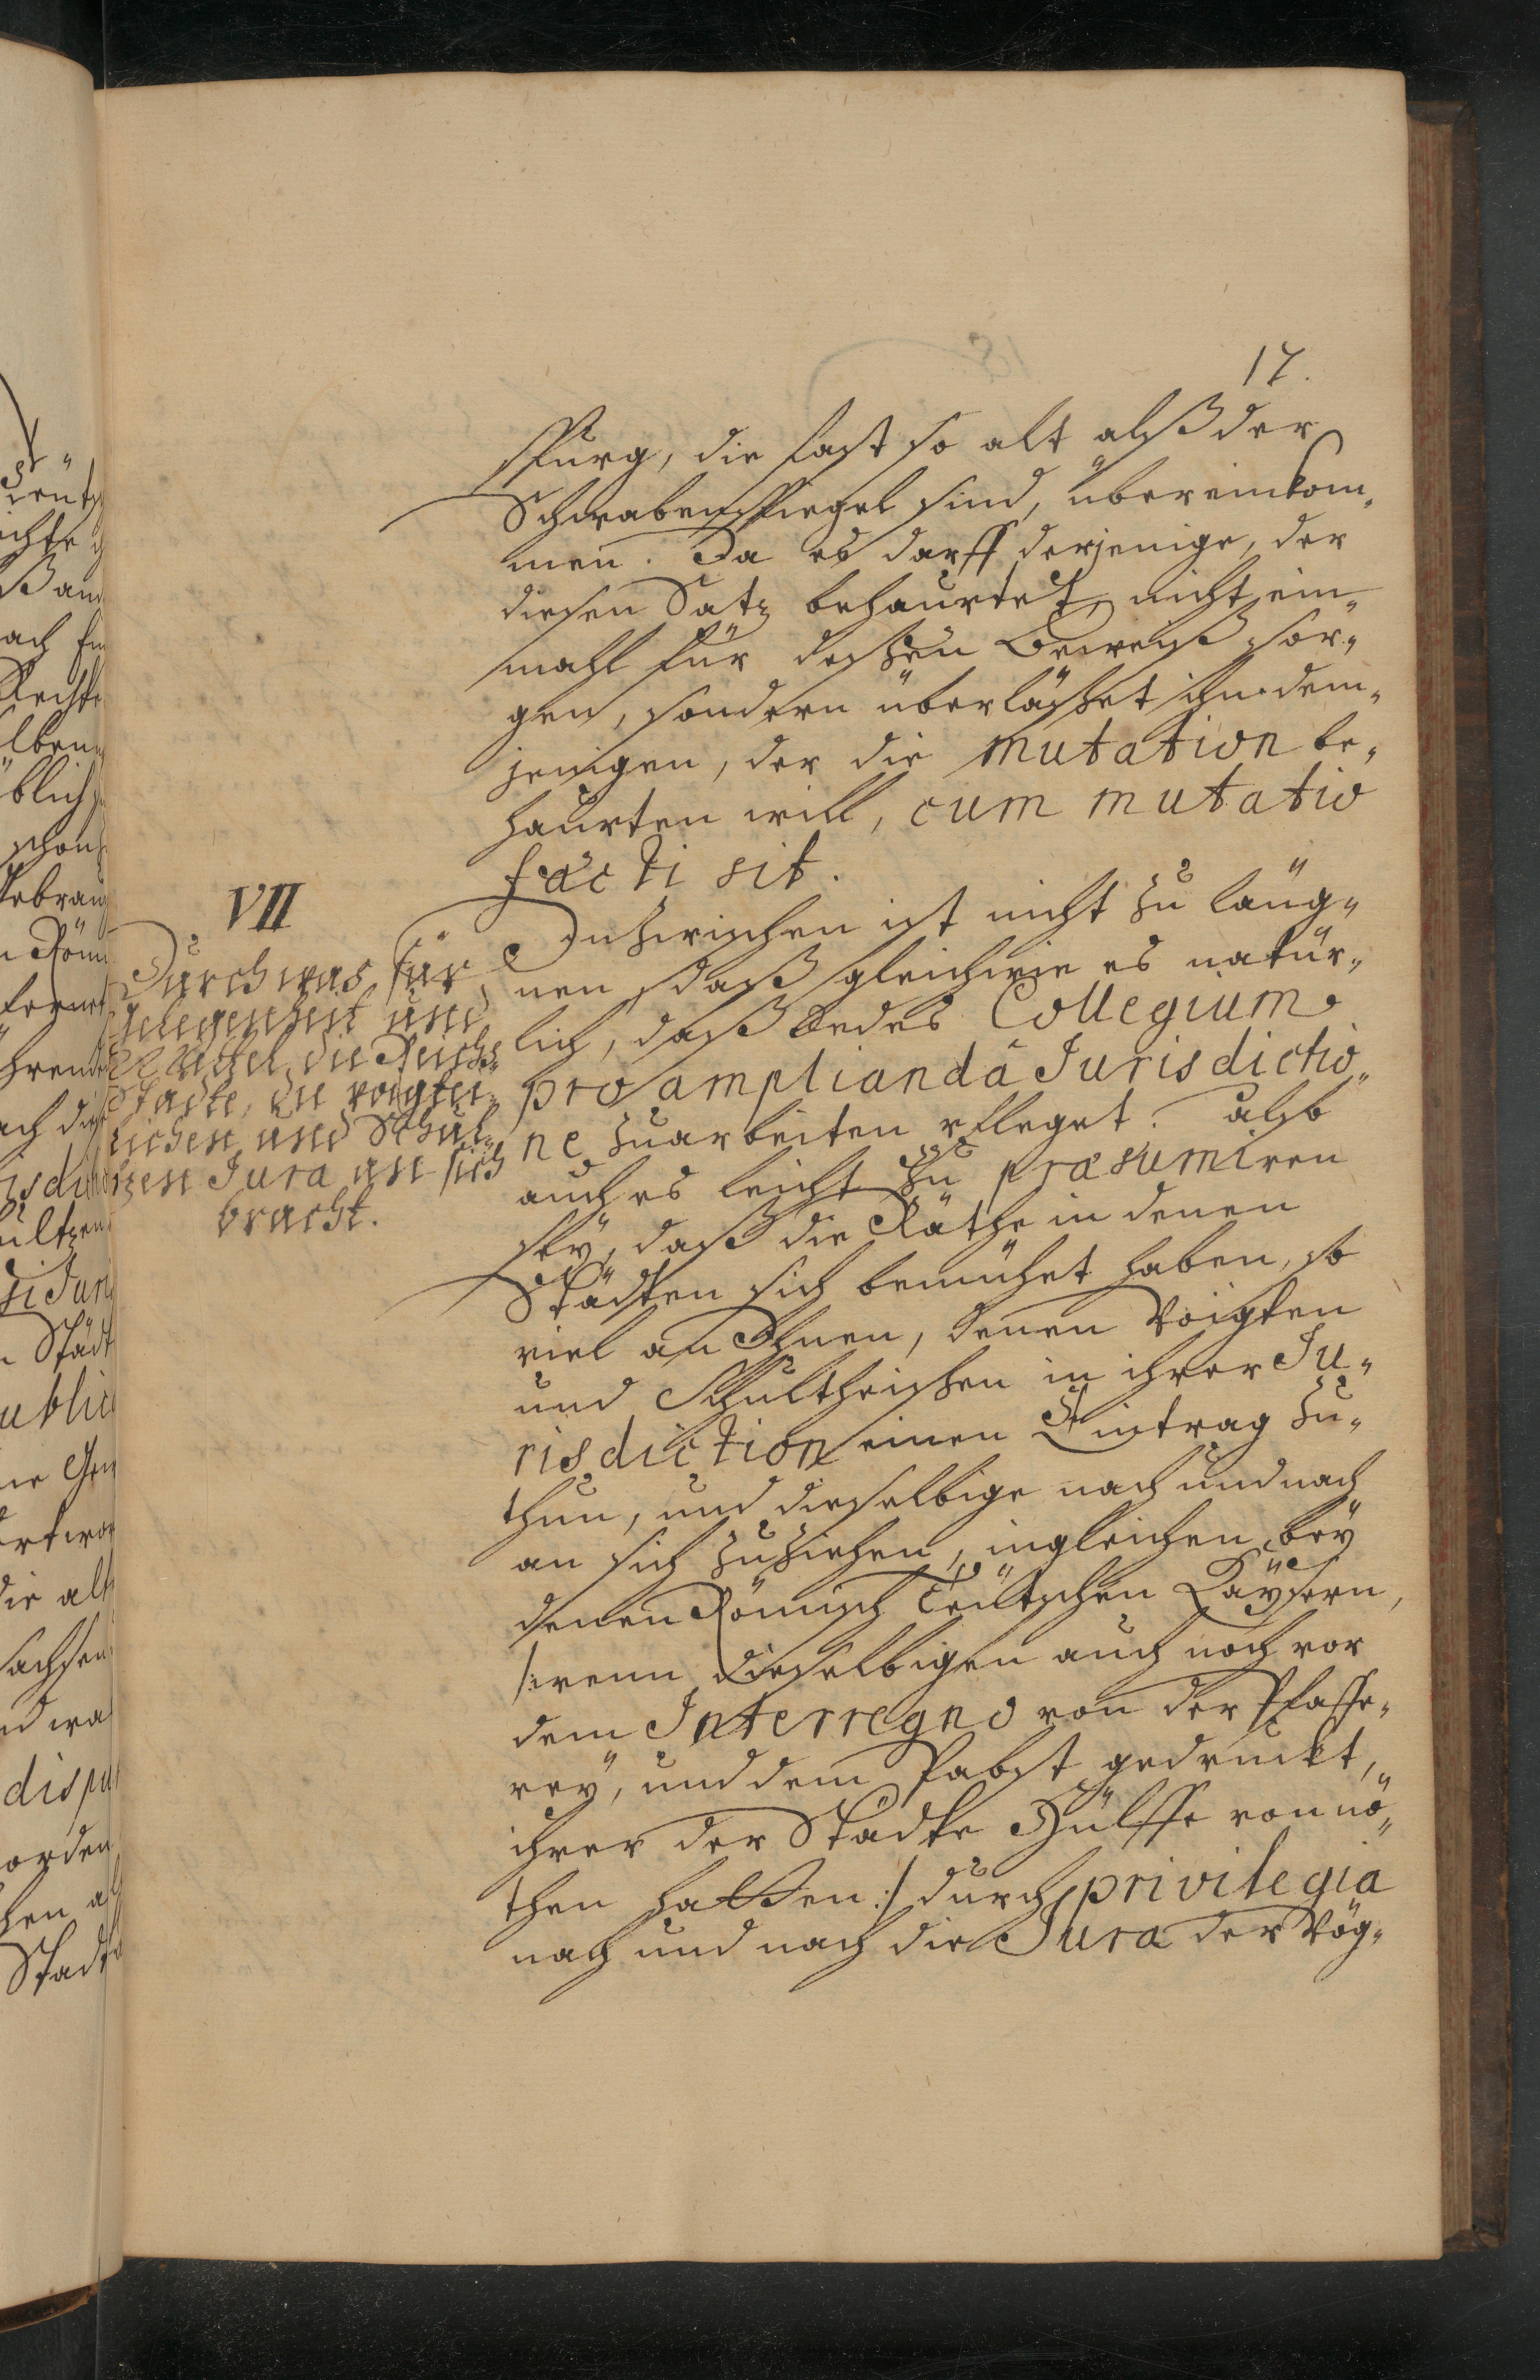 17.
spurg, die fast so alt alß der
Schwabenspiegel sind, übereinkom„
men. Ja es darff derjenige, der
diesen Satz behaurtet, nicht ein„
mahl für dessen Beweiß sor„
gen, sondern überlässet ihn dem„
jenigen, der die mutation be„
haurten will, cum mutatio
facti sit.
VII
Durch was für
gelegenheit und
Mittel die Reichs„
Städte, die voigtei„
lichen und Schul„
tzen Jura an sich
bracht.
Inzwischen ist nicht zu läug„
nen, daß gleichwie es natür„
lich, daß jedes Collegium
pro amplianda Jurisdictio„
ne zuarbeiten pfleget. also
auch es leicht zu præsumiren
sey, daß die Räthe in denen
Städten sich bemühet haben, so
viel an Ihnen, denen Voigten
und Schultheissen in ihrer Ju„
risdiction einen Eintrag zu„
thun, und dieselbige nach und nach
an sich zuziehen, ingleichen bey
denen Römisch Teutschen Kaÿsern,
/:wenn dieselbigen auch noch vor
dem Interregno von der Pfaffe„
rey, und dem Pabst gedruckt,
ihrer der Städte Hülffe von nö„
then hatten:/ durch privilegia
nach und nach die Jura der Vög„